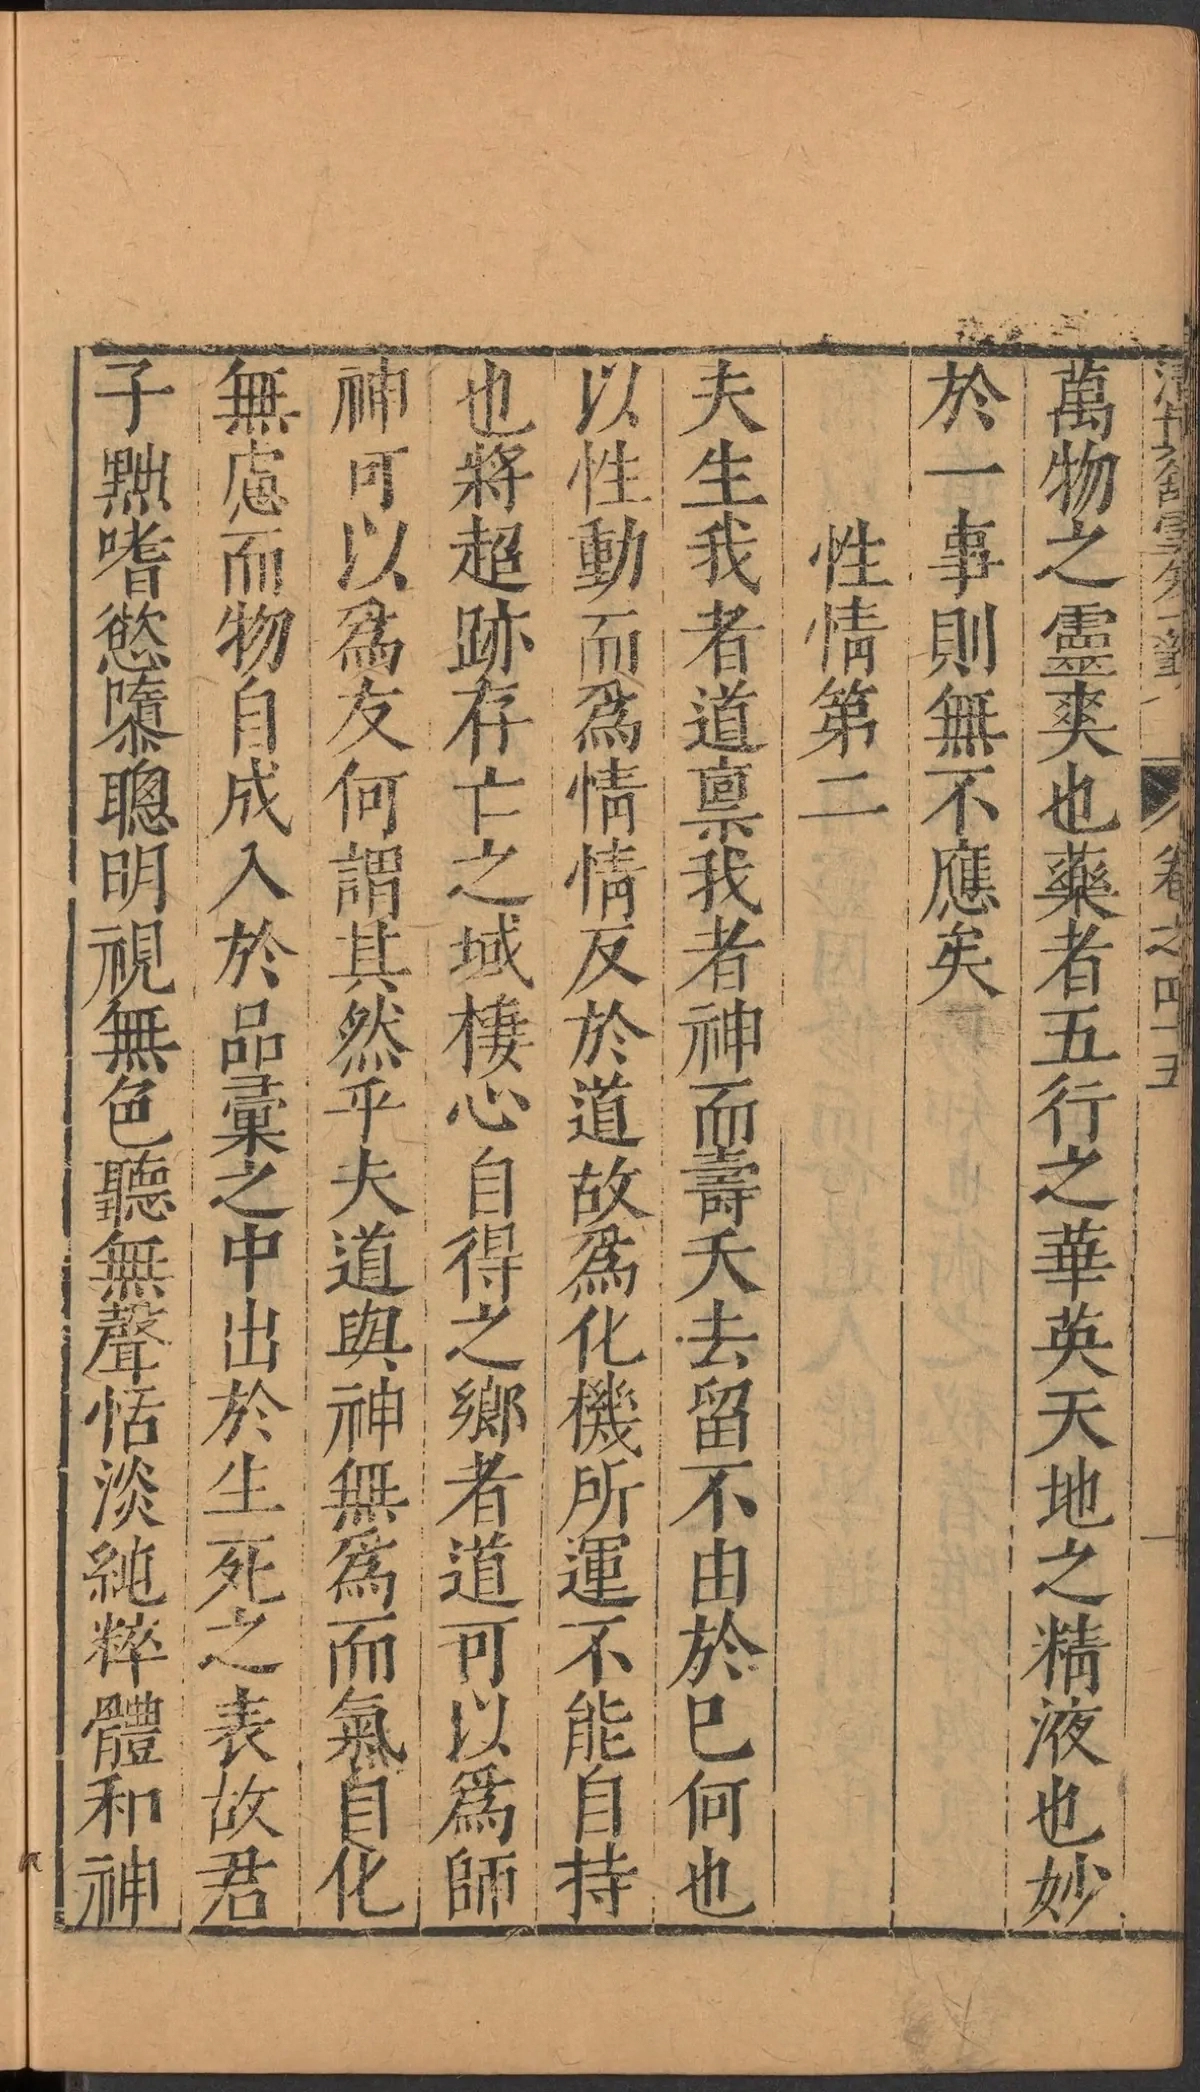 卷之四十五
萬物之靈爽也藥者五行之華英天地之精液也妙
於一事則無不應矣
性情第二
夫生我者道禀我者神而壽夭去留不由於已何也
以性動而爲情情反於道故爲化機所運不能自持
也將超跡存亡之域棲心自得之鄉者道可以爲師
神可以爲友何謂其然乎夫道與神無爲而氣自化
無慮而物自成入於品彙之中出於生死之表故君
子黜嗜慾隳聰明視無色聽無聲恬淡純粹體和神